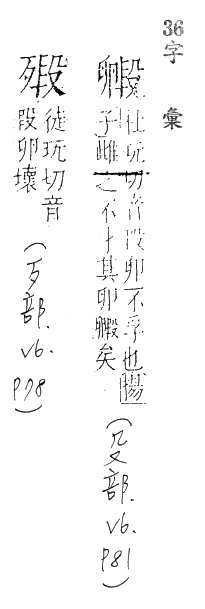 36
字彙
毈
玩切音段卵不孚也揚
子雌之不才其卵毈矣
(殳部. v6. p81)
徒玩切音
段卵壞
(歹部. v6. p78)